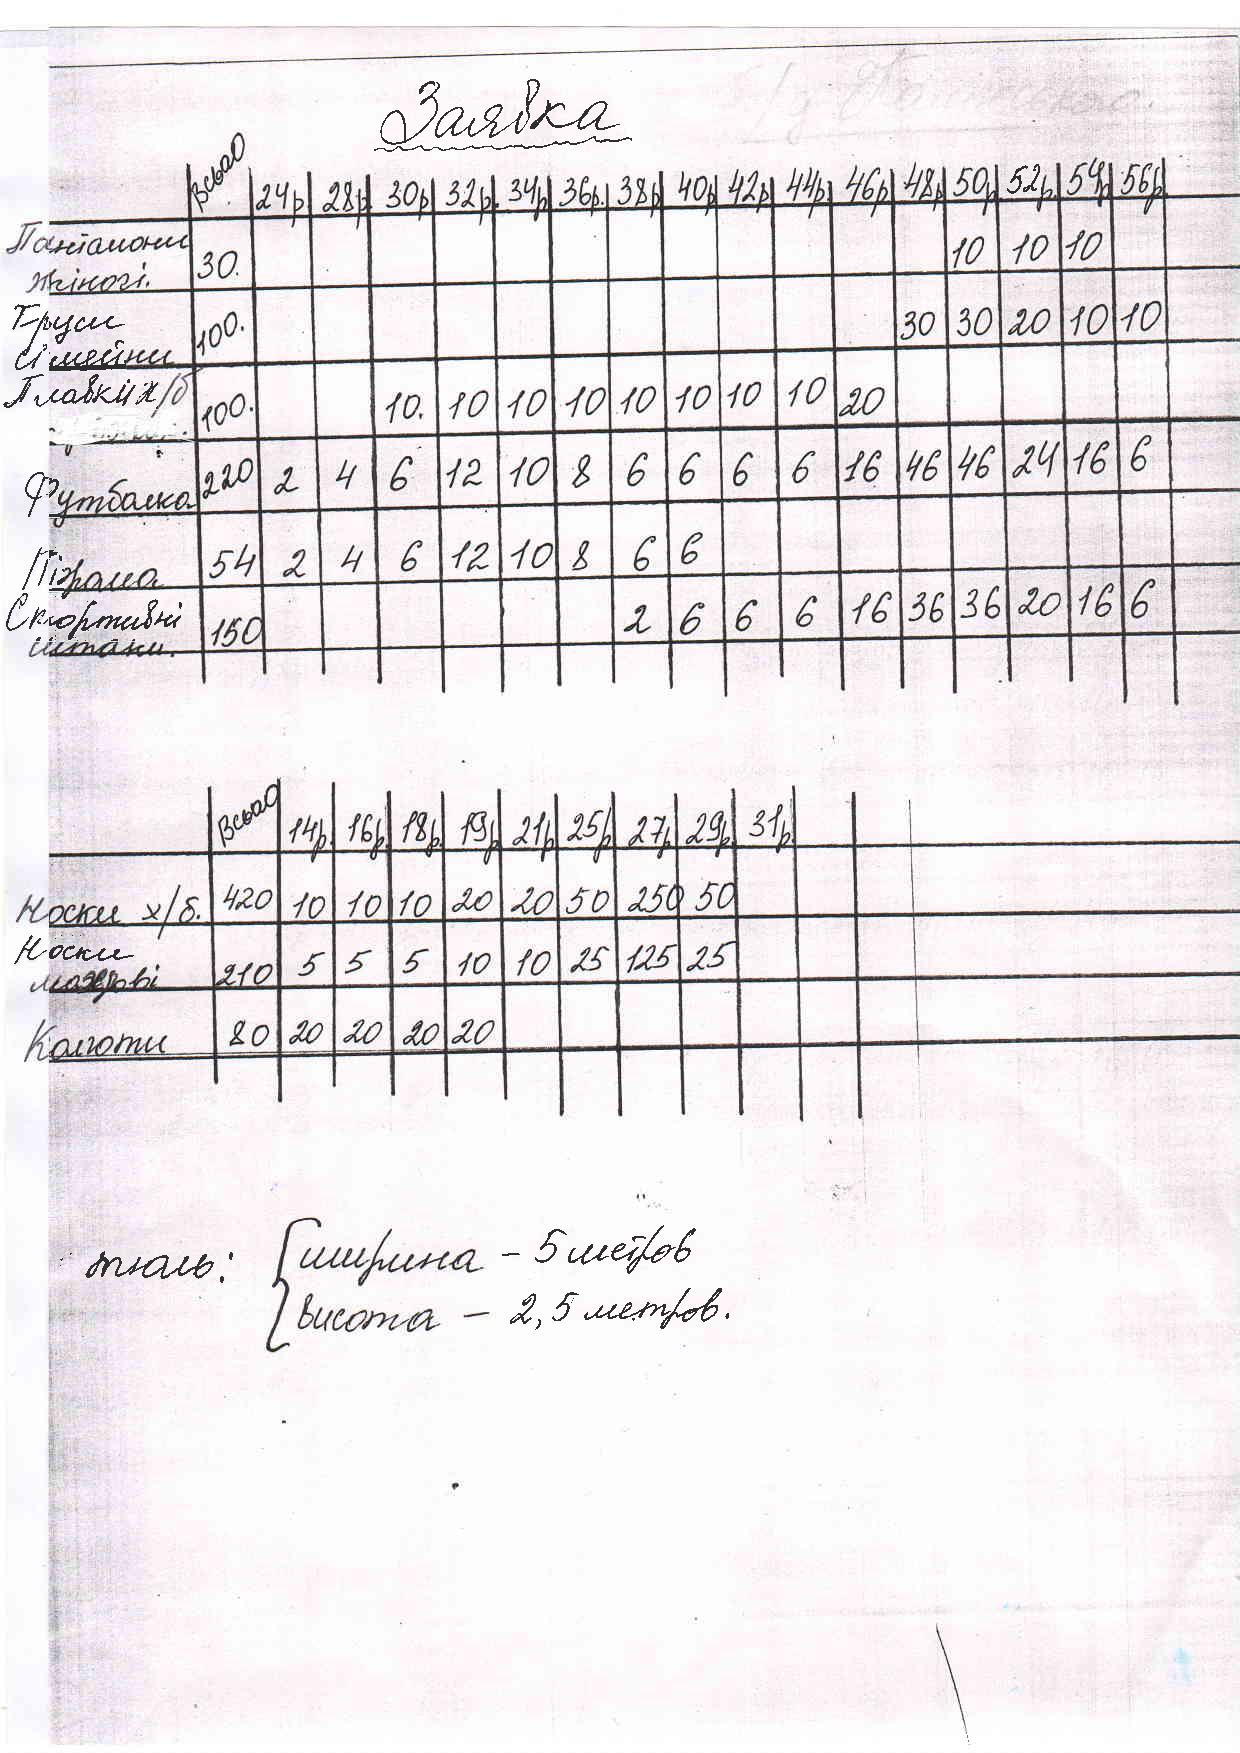 Заявка
Всього 24р 28р 30р 32р. 34р 36р. 38р 40р 42р 44р. 46р 48р 50р 52р. 54р 56р.
Панталони жіночі. 30. 10 10 10
Труси сімейни 100. 30 30 20 10 10
Плавки х/б 100. 10. 10 10 10 10 10 10 10 20
Футболка 220 2 4 6 12 10 8 6 6 6 6 16 46 46 24 16 6
Піжама 54 2 4 6 12 10 8 6 6
Спортивні штани. 150 2 6 6 6 16 36 36 20 16 6
Всього 14р. 16р. 18р. 19р 21р 25р 27р 29р. 31р.
Носки х/б. 420 10 10 10 20 20 50 250 50
Носки махрові 210 5 5 5 10 10 25 125 25
Колготи 80 20 20 20 20
тюль: ширина - 5 метров
висота - 2,5 метров.